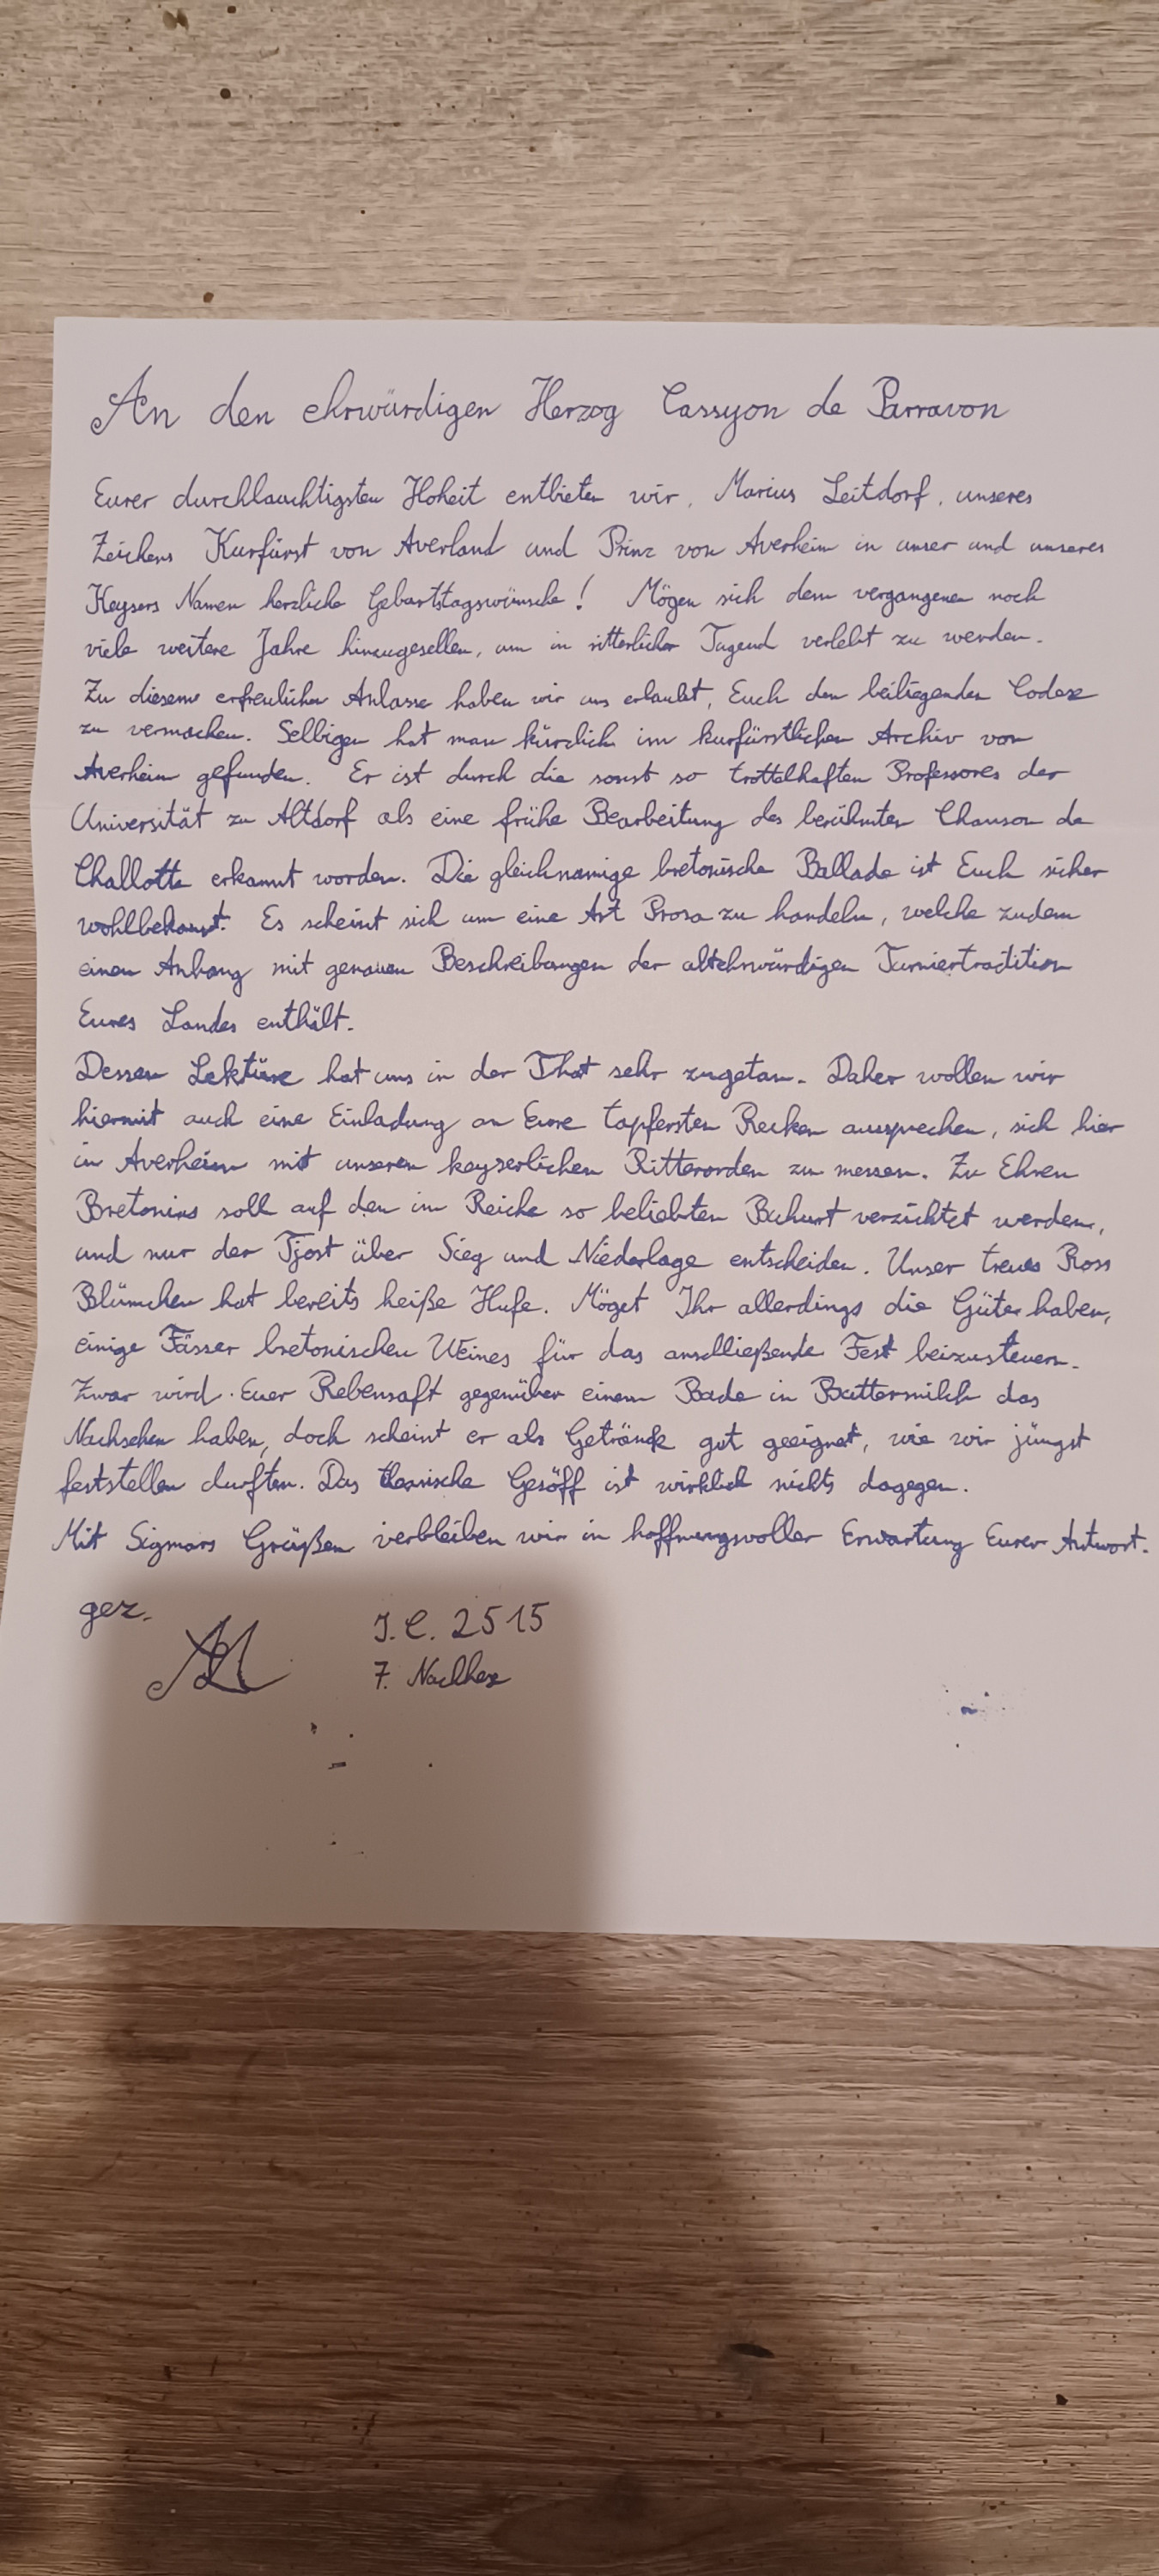 An den ehrwürdigen Herzog Cassyon de Parravon
Eurer durchlauchtigsten Hoheit entbieten wir, Marius Leitdorf, unseres
Zeichens Kurfürst von Averland und Prinz von Averheim in unser und unseres
Keysers Namen herzliche Geburtstagswünsche! Mögen sich dem vergangenen noch
viele weitere Jahre hinzugesellen, um in ritterlicher Tugend verlebt zu werden.
Zu diesem erfreulichen Anlasse haben wir uns erlaubt, Euch den beiliegenden Codex
zu vermachen. Selbigen hat man kürzlich im kurfürstlichen Archiv von
Averheim gefunden. Er ist durch die sonst so trottelhaften Professores der
Universität zu Altdorf als eine frühe Bearbeitung des berühmten Chanson de
Challotte erkannt worden. Die gleichnamige bretonische Ballade ist Euch sicher
wohlbekannt. Es scheint sich um eine Art Prosa zu handeln, welche zudem
einen Anhang mit genauen Beschreibungen der altehrwürdigen Turniertradition
Eures Landes enthält.
Dessen Lektüre hat uns in der That sehr zugetan. Daher wollen wir
hiermit auch eine Einladung an Eure tapfersten Recken aussprechen, sich hier
in Averheim mit unseren keyserlichen Ritterorden zu messen. Zu Ehren
Bretonias soll auf den im Reiche so beliebten Buhurt verzichtet werden,
und nur der Tjost über Sieg und Niederlage entscheiden. Unser treues Ross
Blümchen hat bereits heiße Hufe. Möget Ihr allerdings die Güte haben,
einige Fässer bretonischen Weines für das anschließende Fest beizusteuern.
Zwar wird Euer Rebensaft gegenüber einem Bade in Buttermilch das
Nachsehen haben, doch scheint er als Getränk gut geeignet, wie wir jüngst
feststellen durften. Das Gesöff ist wirklich nichts dagegen.
Mit Sigmars Grüßen verbleiben wir in hoffnungsvoller Erwartung Eurer Antwort.
gez.
I.C. 2515
7. Nachhexe